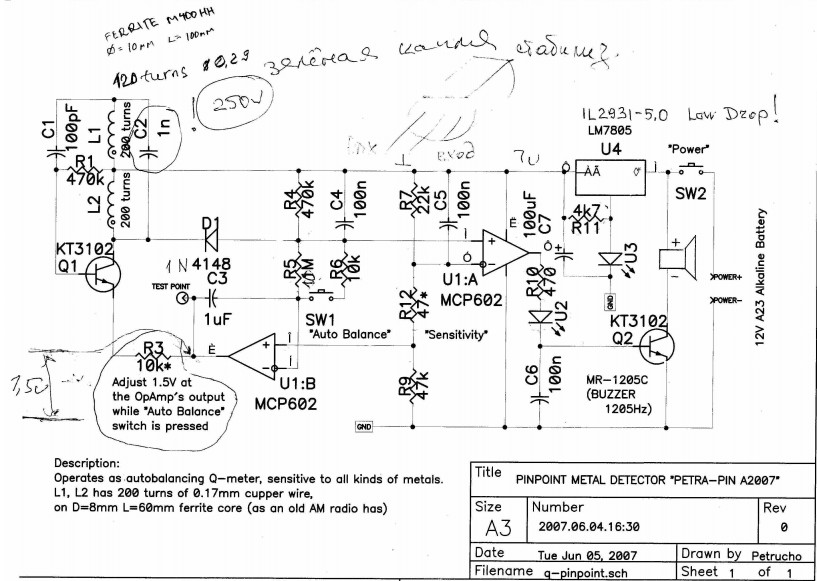 FERRITE M400HH
Ø=10mm L=100mm
120 turns Ø0,29
зелёная капля стабилиз.
250V
!
C1
100pF
L1
200 turns
C2
1n
R1
470k
L2
200 turns
KT3102
Q1
D1
1N4148
TEST POINT
C3
1uF
R4
470k
C4
100n
R5
R6
10k
SW1
"Auto Balance"
вход
7V
R7
22k
C5
100n
R12
47*
"Sensitivity"
R9
47k
U1:A
MCP602
U1:B
MCP602
100uF
C7
R10
470
U2
C6
100n
IL2931-5,0 Low Drop!
LM7805
U4
"Power"
SW2
4k7
R11
U3
GND
KT3102
Q2
MR-1205C
(BUZZER
1205Hz)
POWER+
POWER-
12V A23 Alkaline Battery
GND
R3
10k*
1,5V
Adjust 1.5V at
the OpAmp's output
while "Auto Balance"
switch is pressed
Description:
Operates as autobalancing Q-meter, sensitive to all kinds of metals.
L1, L2 has 200 turns of 0.17mm cupper wire,
on D=8mm L=60mm ferrite core (as an old AM radio has)
Title PINPOINT METAL DETECTOR "PETRA-PIN A2007"
Size Number Rev
A3 2007.06.04.16:30 0
Date Tue Jun 05, 2007 Drawn by Petrucho
Filename q-pinpoint.sch Sheet 1 of 1